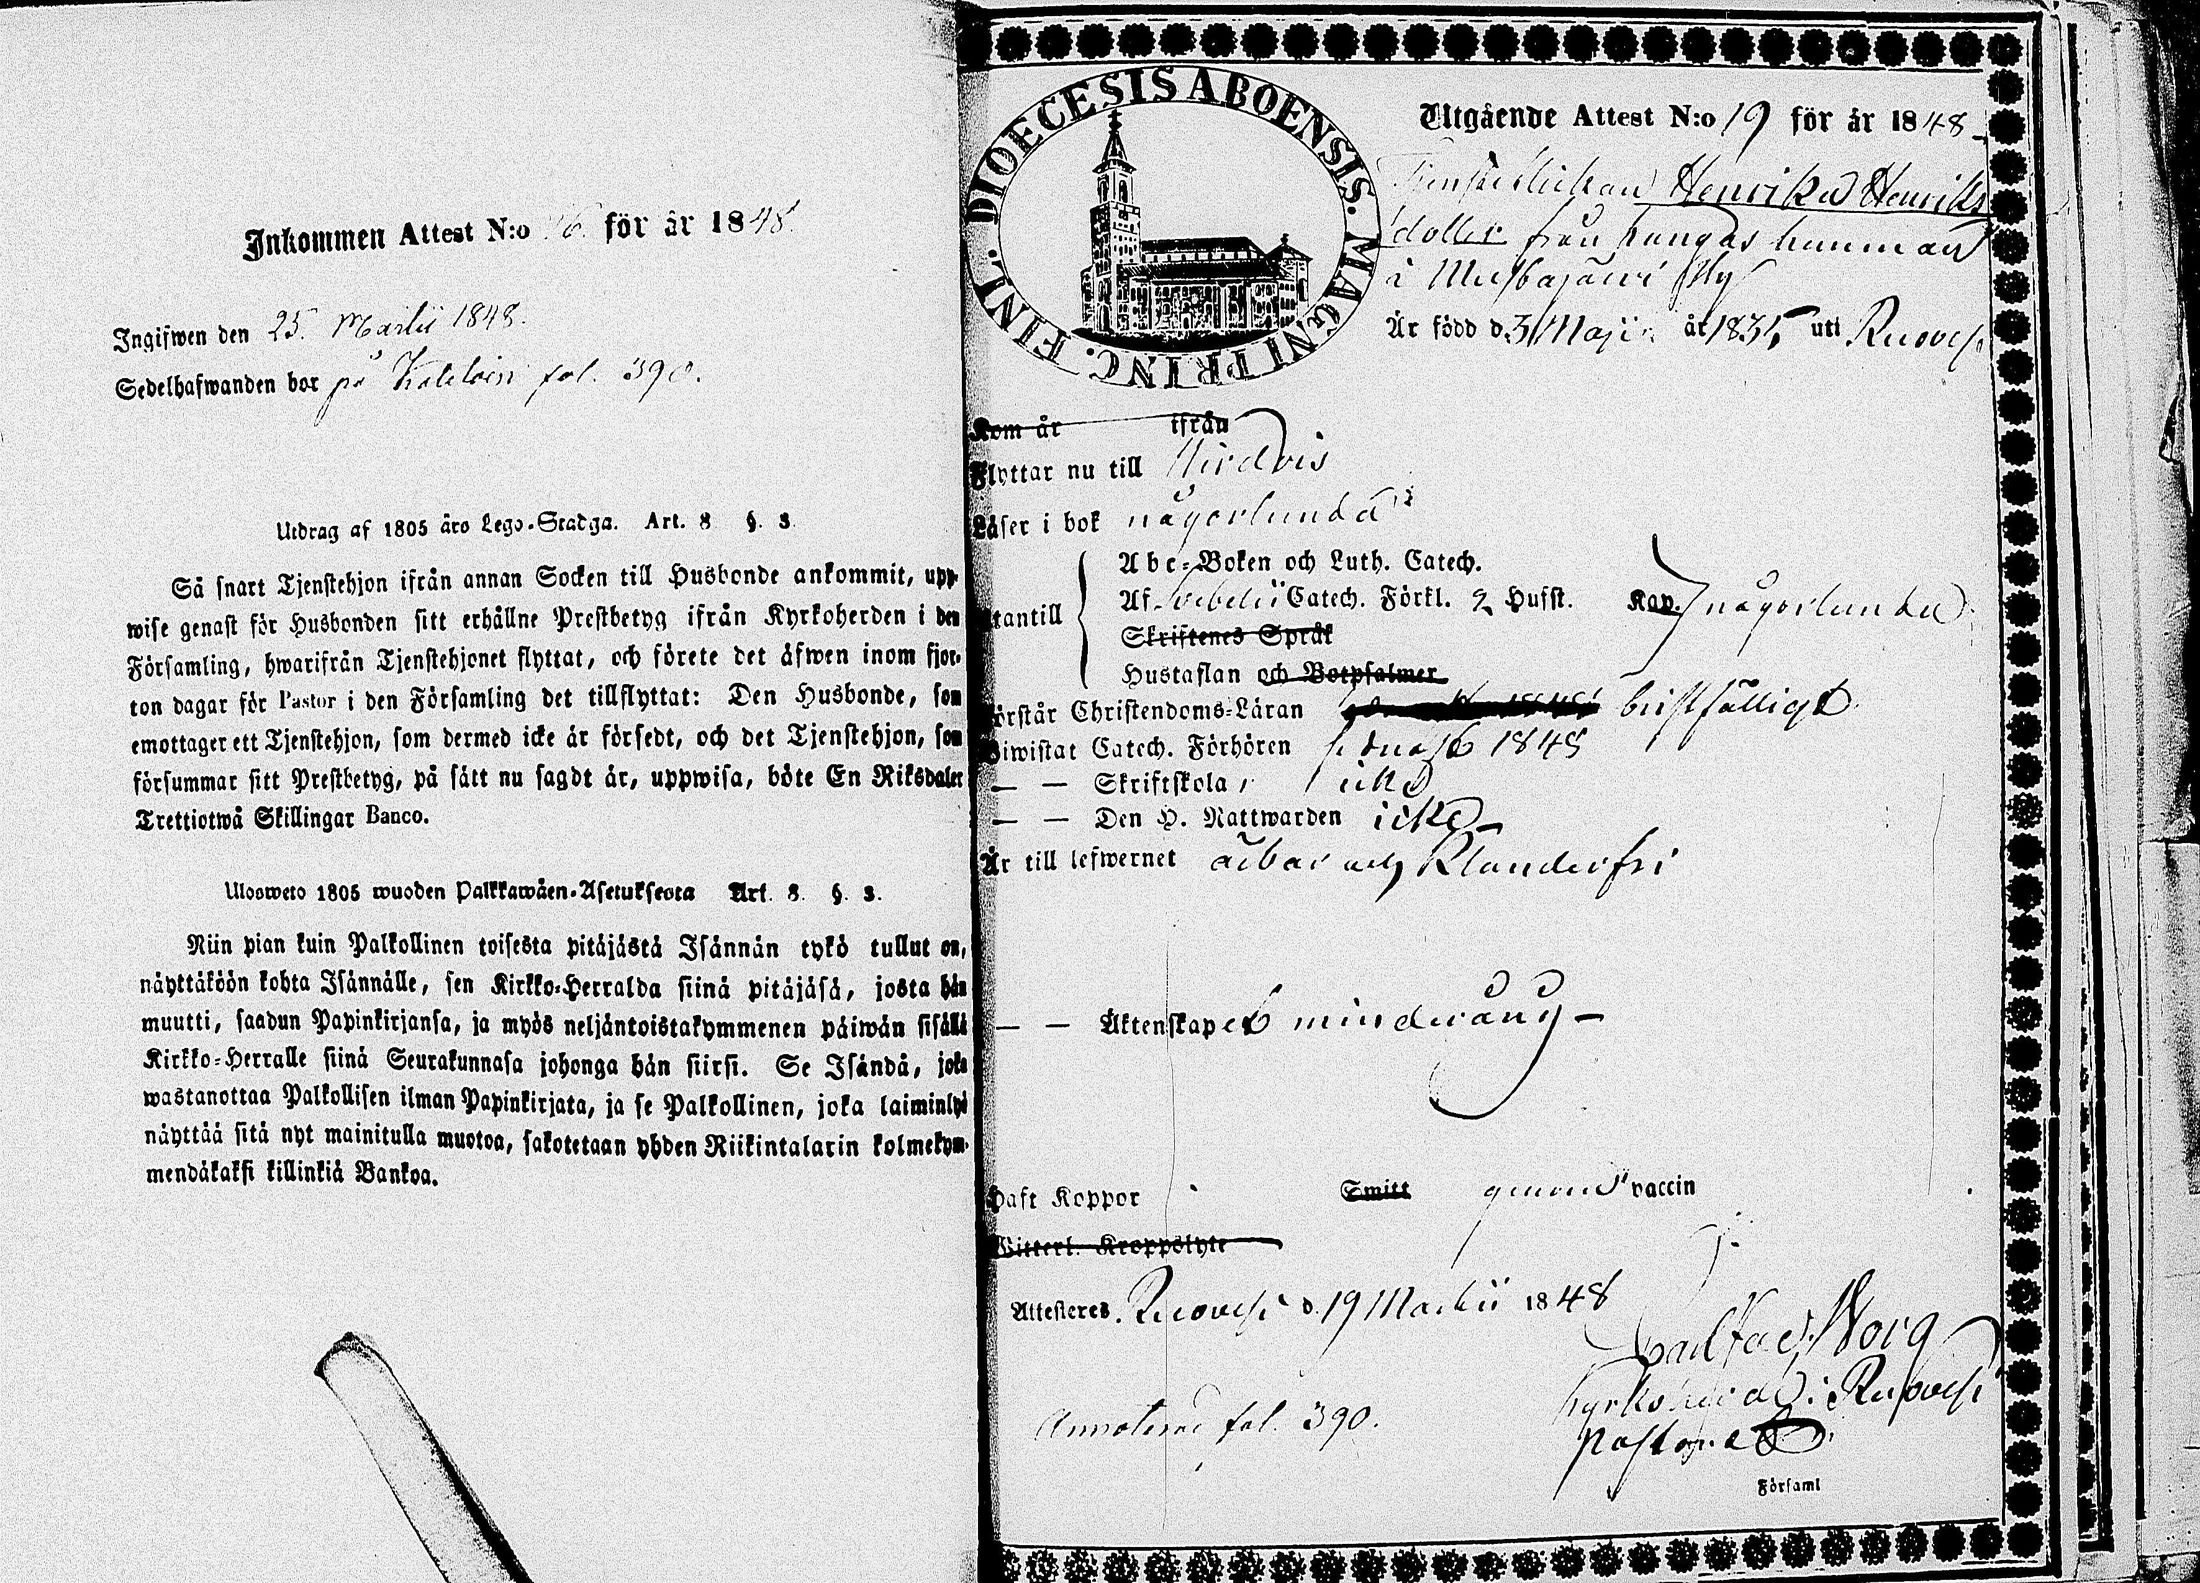 Inkommen Attest N:o 16. för år 1848.
Ingifwen den 25. Martii 1848.
Sedelhafwanden bor på fol. 390.
Utdrag af 1805 års Lego-Stadga. Art. 8 §. 3.
Så snart Tjenstehjon ifrån annan Socken till Husbonde ankommit, upp-
wise genast för Husbonden sitt erhållne Prestbetyg ifrån Kyrkoherden i den
Församling, hwarifrån Tjenstehjonet flyttat, och förete det äfwen inom fjor-
ton dagar för Pastor i den Församling det tillflyttat: Den Husbonde, som
emottager ett Tjenstehjon, som dermed icke är försedt, och det Tjenstehjon, som
försummar sitt Prestbetyg, på sätt nu sagdt är, uppwisa, böte En Riksdaler
Trettiotwå Skillingar Banco.
Ulosweto 1805 wuoden Palkkawäen-Asetuksesta Art. 8. §. 3.
Niin pian kuin Palkollinen toisesta pitäjästä Isännän tykö tullut on,
näyttäköön kohta Isännälle, sen Kirkko-Herralda siinä pitäjäsä, josta hän
muutti, saadun Papinkirjansa, ja myös neljäntoistakymmenen päiwän sisällä
Kirkko-Herralle siinä Seurakunnasa johonga hän siirsi. Se Isändä, joka
wastanottaa Palkollisen ilman Papinkirjata, ja se Palkollinen, joka laiminlyö
näyttää sitä nyt mainitulla muotoa, sakotetaan yhden Riikintalarin kolmekym-
mendäkaksi killinkiä Bankoa.
DIOECESIS ABOENSIS. MAGNI PRINC. FINL.
Utgående Attest N:o 19 för år 1848
Henrika Henriks
dotter från hemman
å by
Är född d. 31 Maji år 1835 uti Ruovesi
Kom år ifrån
Flyttar nu till Kirdois
Läser i bok någorlunda
Utantill
Abc-Boken och Luth. Catech.
Af Svebelii Catech. Förkl. 2 Hufst. Kap. någorlunda
Skriftenes Språk
Hustaflan och Botpsalmer
Förstår Christendoms-Läran bristfälligt
Biwistat Catech. Förhören sednast 1848
— — Skriftskola icke
— — Den H. Nattwarden icke
Är till lefwernet ärbar och Klanderfri
— — Äktenskapet minderårig —
Haft Koppor Smitt genom vaccin
Witterl. Kroppslyte
Attesteras. Ruovesi d. 19 Martii 1848
Carl Norg
Kyrkoherde i Ruovesi
Pastorat.
Annoterad fol. 390.
Församl